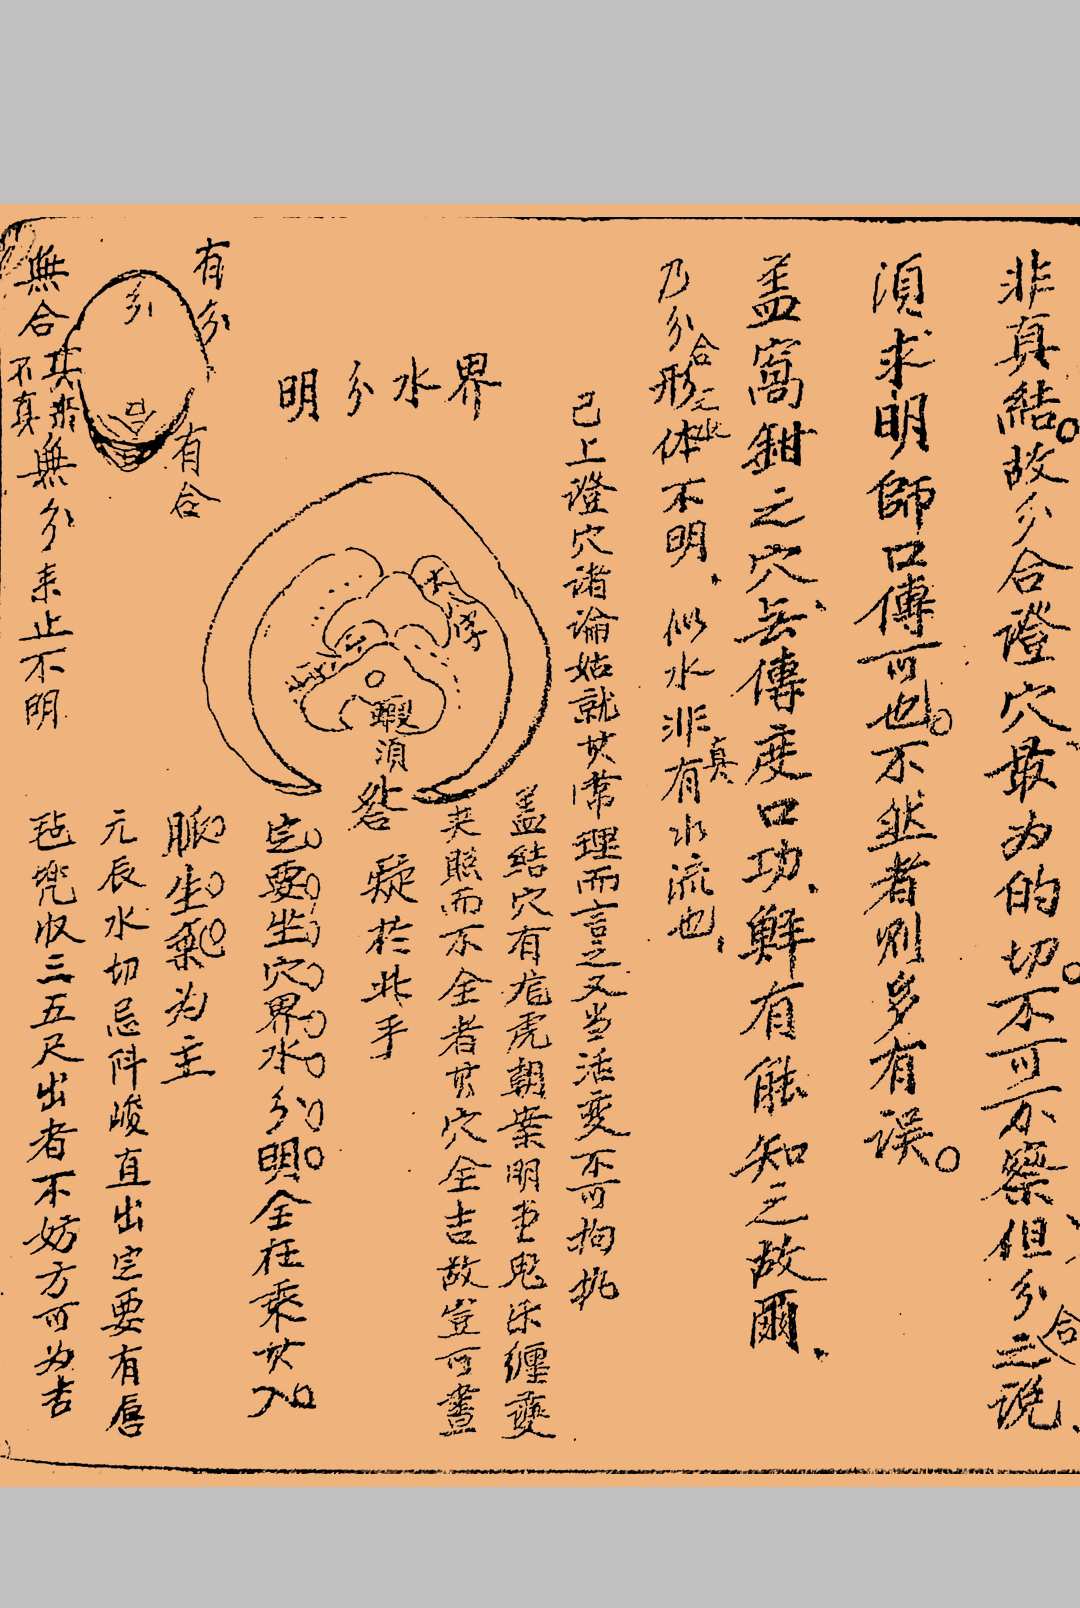 非真結故分合證穴最为的切不可不察但分合之說
須求明師口傳可也不然者則多有误
盖窩鉗之穴無傳度口功鮮有能知之故爾
乃分合形体不明似水非真有水流也
已上證穴諸論姑就其常理而言之又当活变不可拘执
盖結穴有龍虎朝案明堂鬼乐纏變
夹照而不全者其穴全吉故豈可盡
疑於此乎
界水分明
蝦須
定要坐穴界水分明全在乘其入
脈生氣为主
有分
分
合
有合
元辰水切忌斜峻直出定要有唇
無合其来不真無分来止不明
毡兜收三五尺出者不妨方可为吉